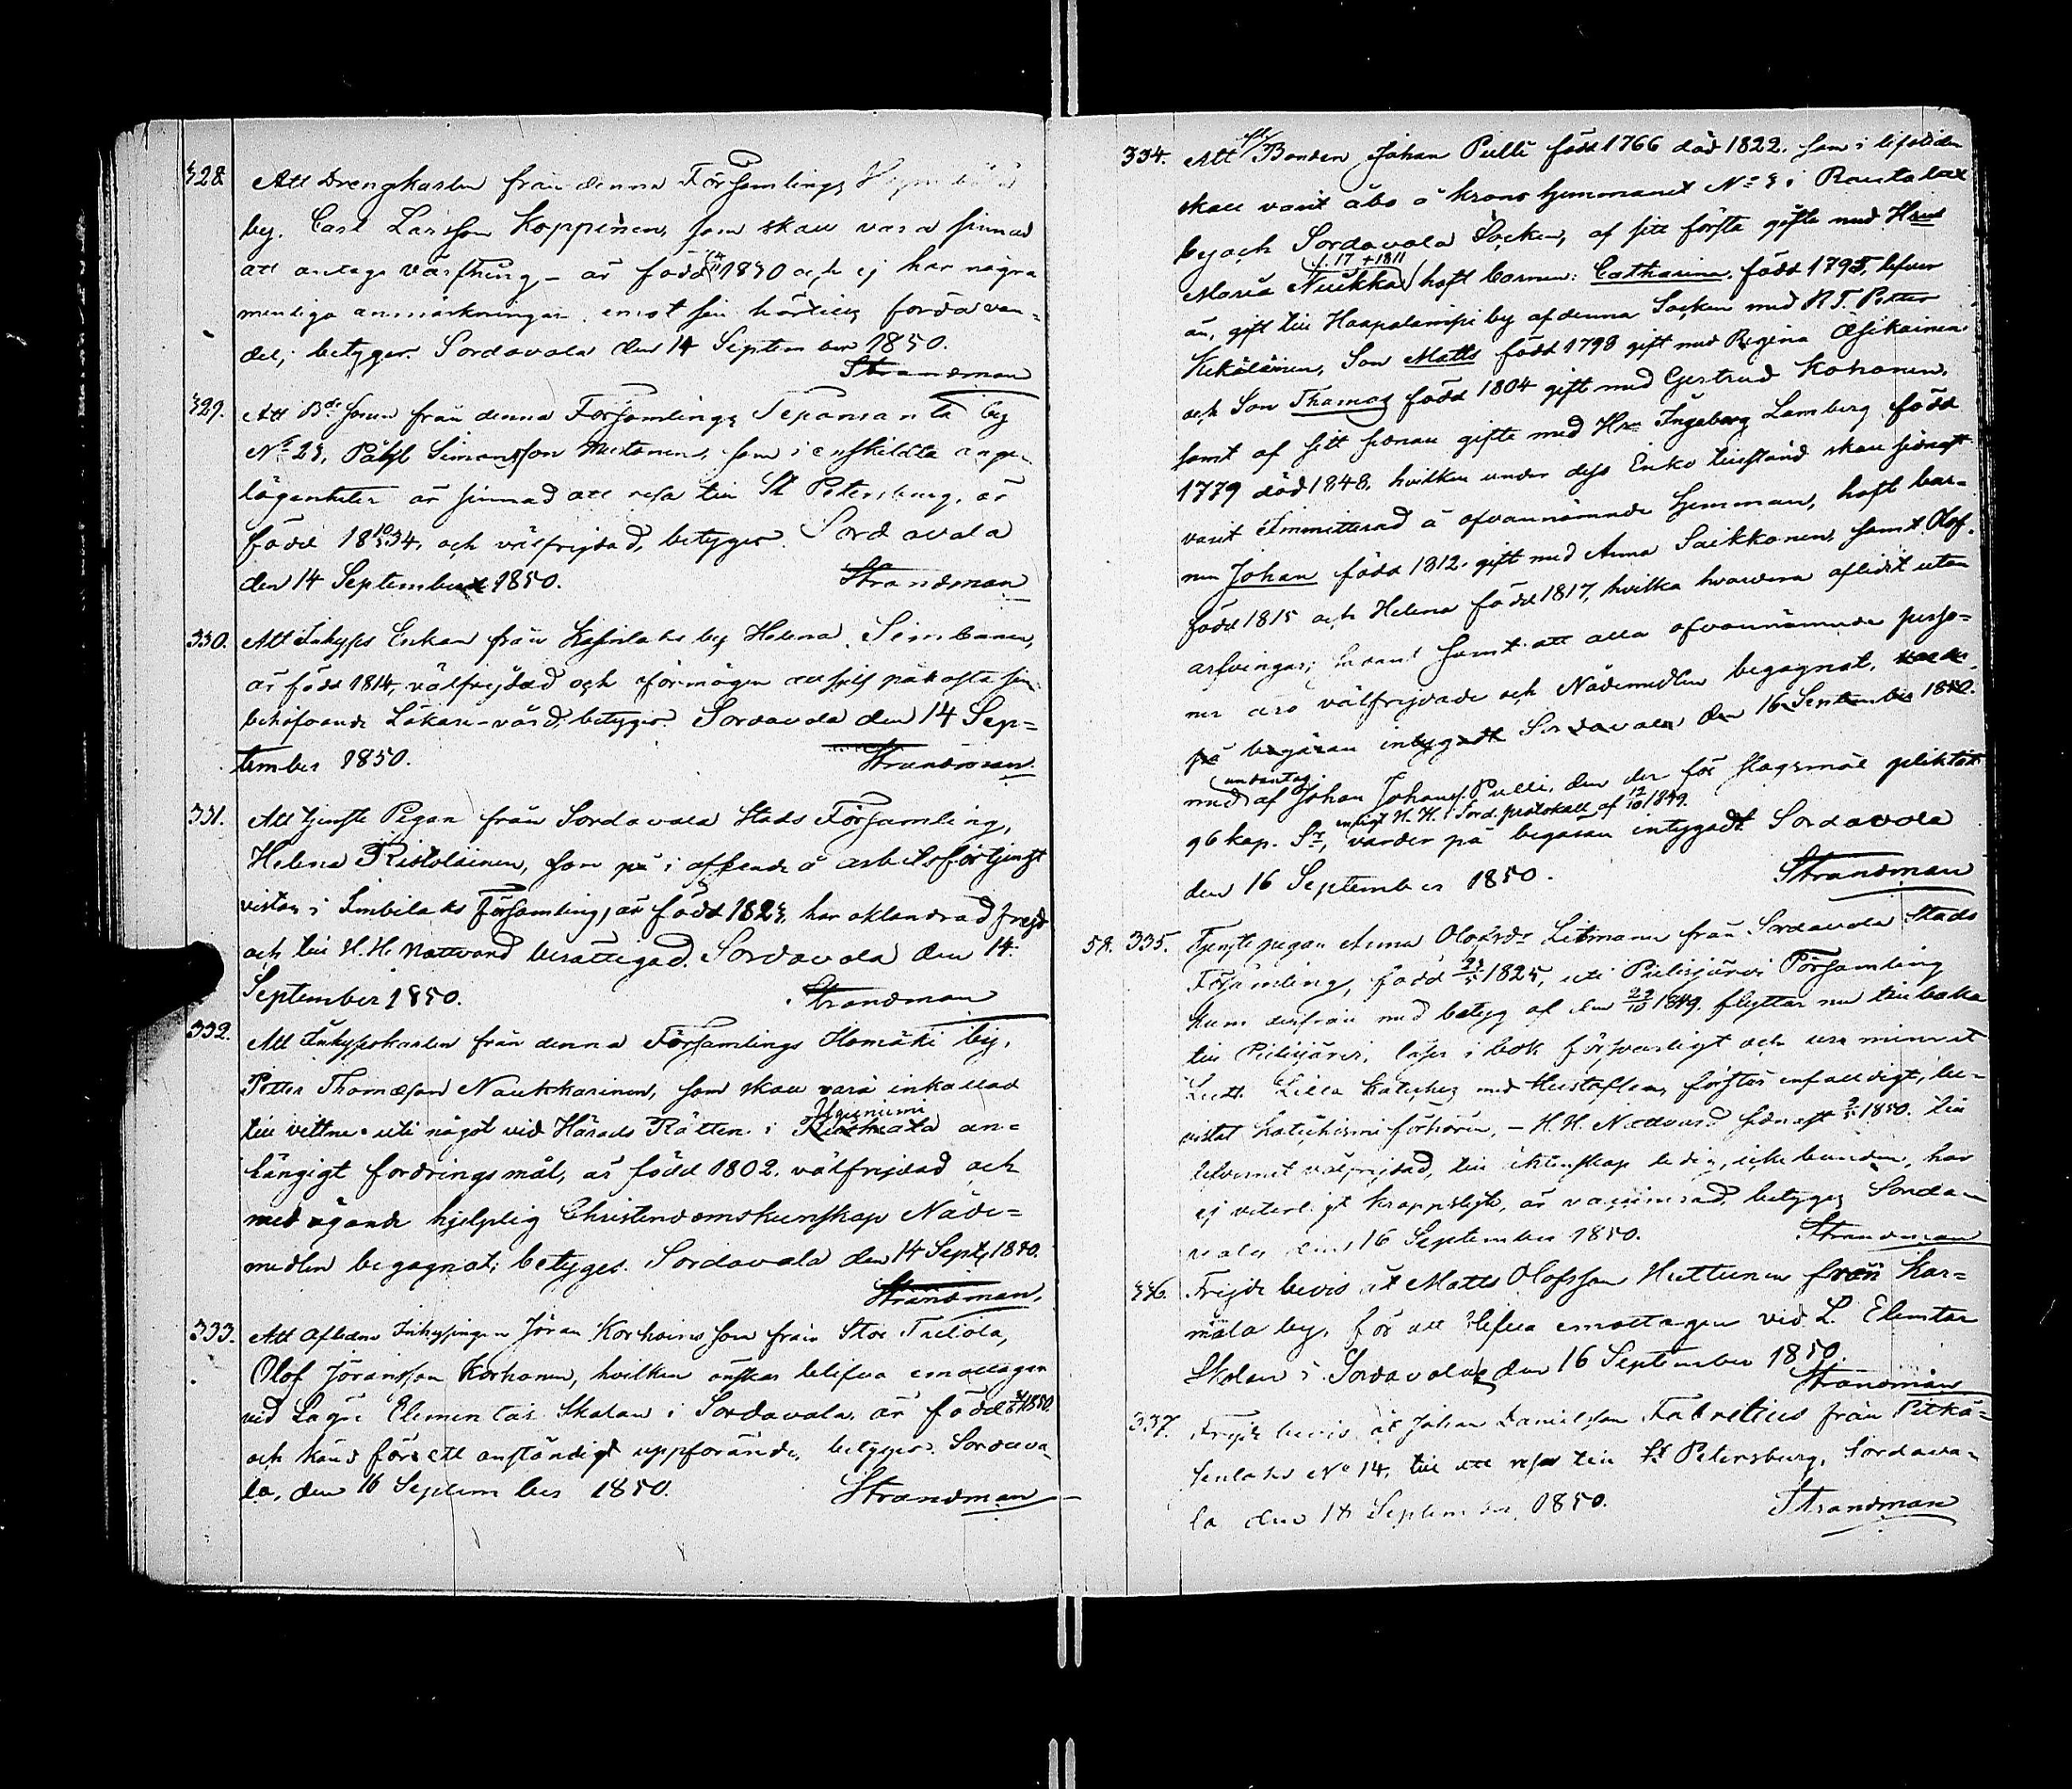 328. Att Drengkarlen från denna Församlings
by, Carl Larsson Koppinen, som skall vara sinnad
att antaga värfning - är född 1830 och ej har några
menliga anmärkningar emot sin hörtills förda van=
del, betygar. Sordavala den 14 September 1850.
Strandman
329. Att Bde sonen från denna Församlings Tepansanla by
No 23, Påhl Simonsson Mustonen, som i enskildta ange-
lägenheter är sinnad att resa till St Petersburg, är
född 1834, och välfrejdad, betygar. Sordavala
den 14 September 1850. Strandman
330. Att Inhyses Enkan från by Helena Simbanen,
är född 1814, välfrejdad och oförmögen att sjelf påkosta sin
behöfvande Läkare-vård, betygar. Sordavala den 14 Sep=
tember 1850. Strandman
331. Att tjenste Pigan från Sordavala Stads Församling,
Helena Ristolainen, som på i afseende å arbetsförtjenst
vistas i Imbilaks församling, är född 1823, har oklandrad frejd
och till H. H. Nattvard berättigad. Sordavala den 14
September 1850. Strandman
332. Att Inhyseskarlen från denna Församlings Homäki by,
Petter Thomasson Naukkarinen, som skall vara inkallad
Uguniemi
till vittne uti något vid Härads Rätten i an=
hängigt fordringsmål, är född 1802, välfrejdad och
med ägande hjelplig Christendomskunskap Nåde=
medlen begagnat; betyges. Sordavala den 14 Sept. 1850.
Strandman.
333. Att aflidne Inhysingen Jöran Korhoinens son från Stor Tuliola,
Olof Jöransson Korhonen, hvilken önskar blifva emottagen
vid Lägre Elementar Skolan i Sordavala, är född
och känd för ett anständigt uppförande, betygas. Sordava-
la, den 16 September 1850. Strandman
334. Att Bonden Johan Pulli född 1766 död 1822, som i lifstiden
skall varit åbo å krono hemmanet No 3 i Rautalax
by och Sordavala Socken, af sitt första gifte med Hust
f. 17 +1811
Maria Nuikka haft barnen: Catharina, född 1795, lefver
än, gift till Haapalampi by af denna Socken med R.T. Petter
Kekäläinen, Son Matts född 1798 gift med Regina Äsikainen
och Son Thomas född 1804 gift med Gertrud Kohonen,
samt af sitt senare gifte med Hu Ingeborg Lamberg född
1779 död 1848, hvilken under dess Enke tillstånd skall sednast
varit Immitterad å ofvannämnde Hemman, haft bar=
nen Johan född 1812, gift med Anna Saikkonen, samt Olof,
född 1815 och Helena född 1817, hvilka hvardera aflidit utan
arfvingar; samt att alla ofvannämnde perso=
ner äro välfrejdade och Nådemedlen begagnat,
på begäran intygadt Sordavala den 16 September 1850.
undantag
med af Johan Johansson Pulli, den der för slagsmål pliktat
enligt H. H. i Sord. protokoll af 12/10 1849.
96 kap. Sr, varder på begäran intygadt Sordavala
den 16 September 1850. Strandman
58. 335. Tjenstepigan Anna Olofsdr Litmanen från Sordavala Stads
Församling, född 1825, uti Pielisjärvi Församling
kom derifrån med betyg af den 1849, flyttar nu tillbaka
till Pielisjärvi, läser i bok försvarligt och ur minnet
Luth. Lilla Katches med Hustaflan, förstår enfaldigt, be=
vistat katichismi förhören, - H. H. Nattvard sednast 1850. till
lefvernet välfrejdad, till äktenskap ledig, icke bunden, har
ej veterligt koppor, är vaccinerad, betyges Sorda=
vala den 16 September 1850. Strandman
336. Frejde bevis åt Matts Olofsson Huttunen från Kar=
mala by, för att blifva emottagen vid L. Elemtar
Skolan i Sordavala, den 16 September 1850.
Strandman
337. Frejde bevis åt Johan Danielsson Fabritius från Pitkä=
No 14, till att resa till St Petersburg, Sordava=
la den 18 September 1850. Strandman